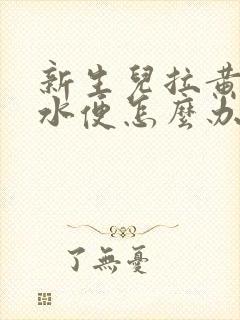 新生兒拉黃
水便怎麼办
了無憂